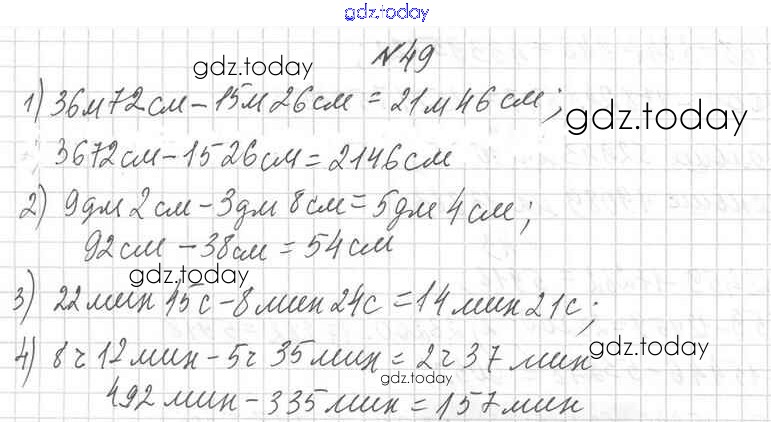 gdz.today
№49
gdz.today
1) 36м72см-15м26см=21м46см;
gdz.today
3672см-1526см=2146см
2) 9дм2см-3дм8см=5дм4см;
92см-38см=54см
gdz.today
3) 22мин15с-8мин24с=14мин21с;
4) 8ч12мин-5ч35мин=2ч37мин
gdz.today
gdz.today
492мин-335мин=157мин